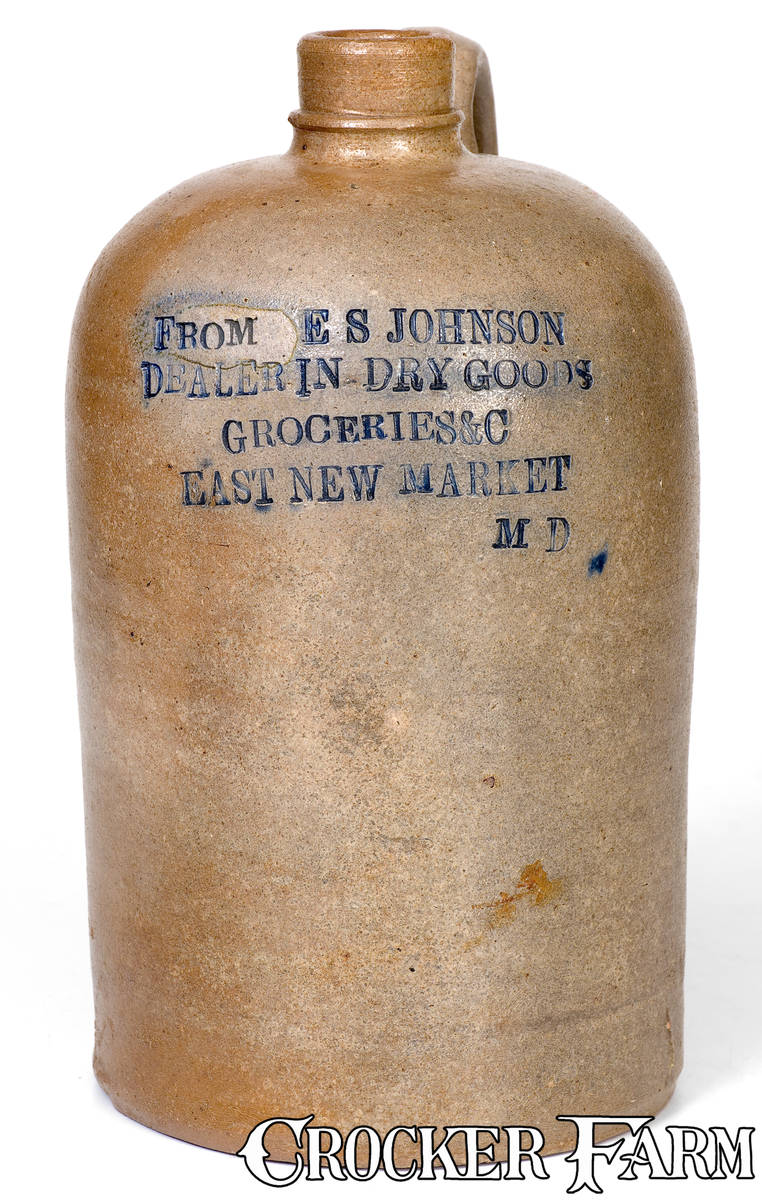 FROM E S JOHNSON
DEALER IN DRY GOODS
GROCERIES&C
EAST NEW MARKET
M D
CROCKER FARM